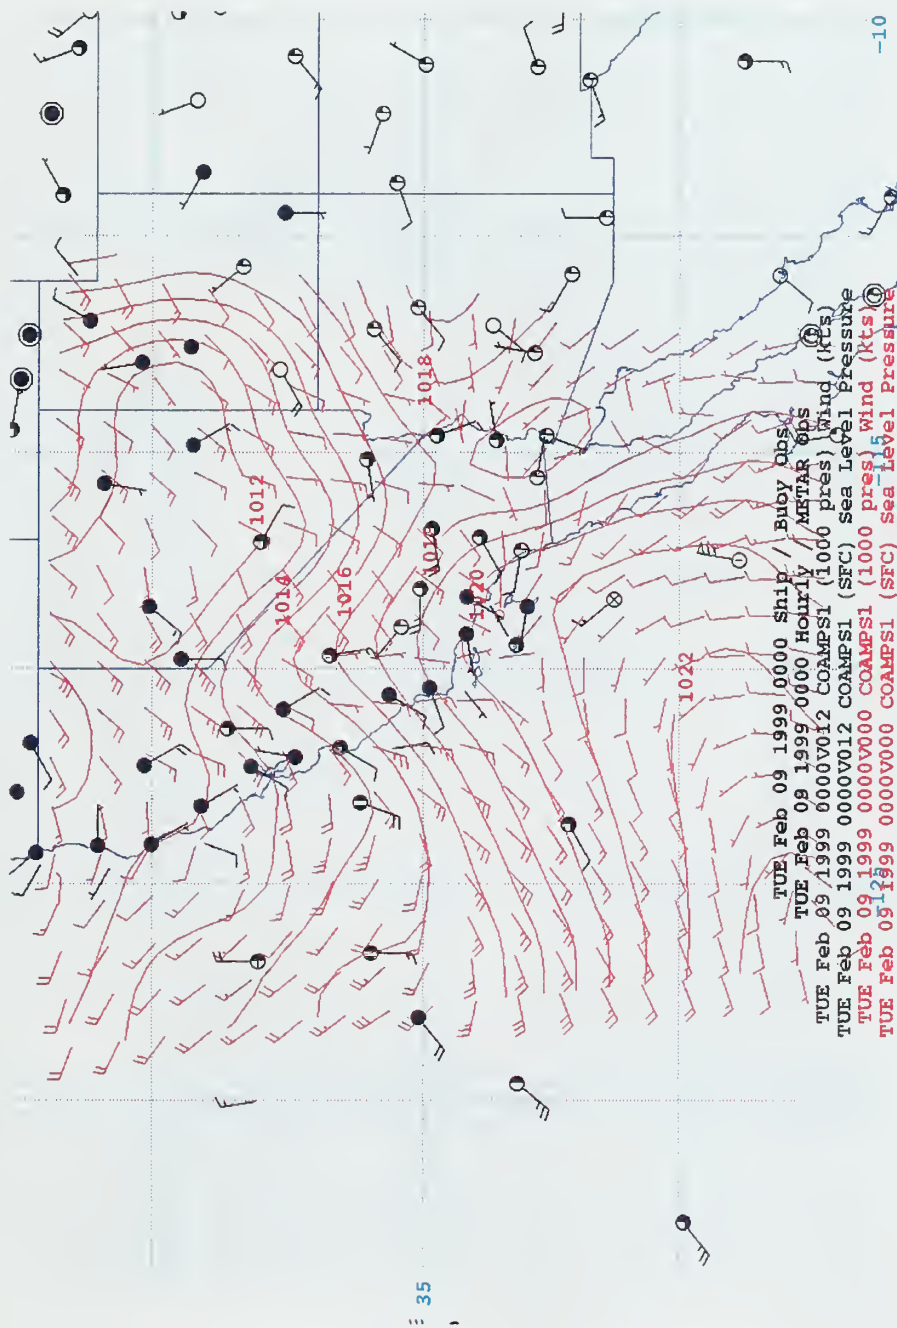 -10
1018
1012
1018
1014
1016
1020
1022
TUE Feb 09 1999 0000 Ship / Buoy Obs
TUE Feb 09 1999 0000 Hourly / METAR Obs
-115
TUE Feb 09 1999 0000V012 COAMPS1 (1000 pres) Wind (kts)
TUE Feb 09 1999 0000V012 COAMPS1 (SFC) Sea Level Pressure
TUE Feb 09 1999 0000V000 COAMPS1 (1000 pres) Wind (kts)
TUE Feb 09 1999 0000V000 COAMPS1 (SFC) Sea Level Pressure
35